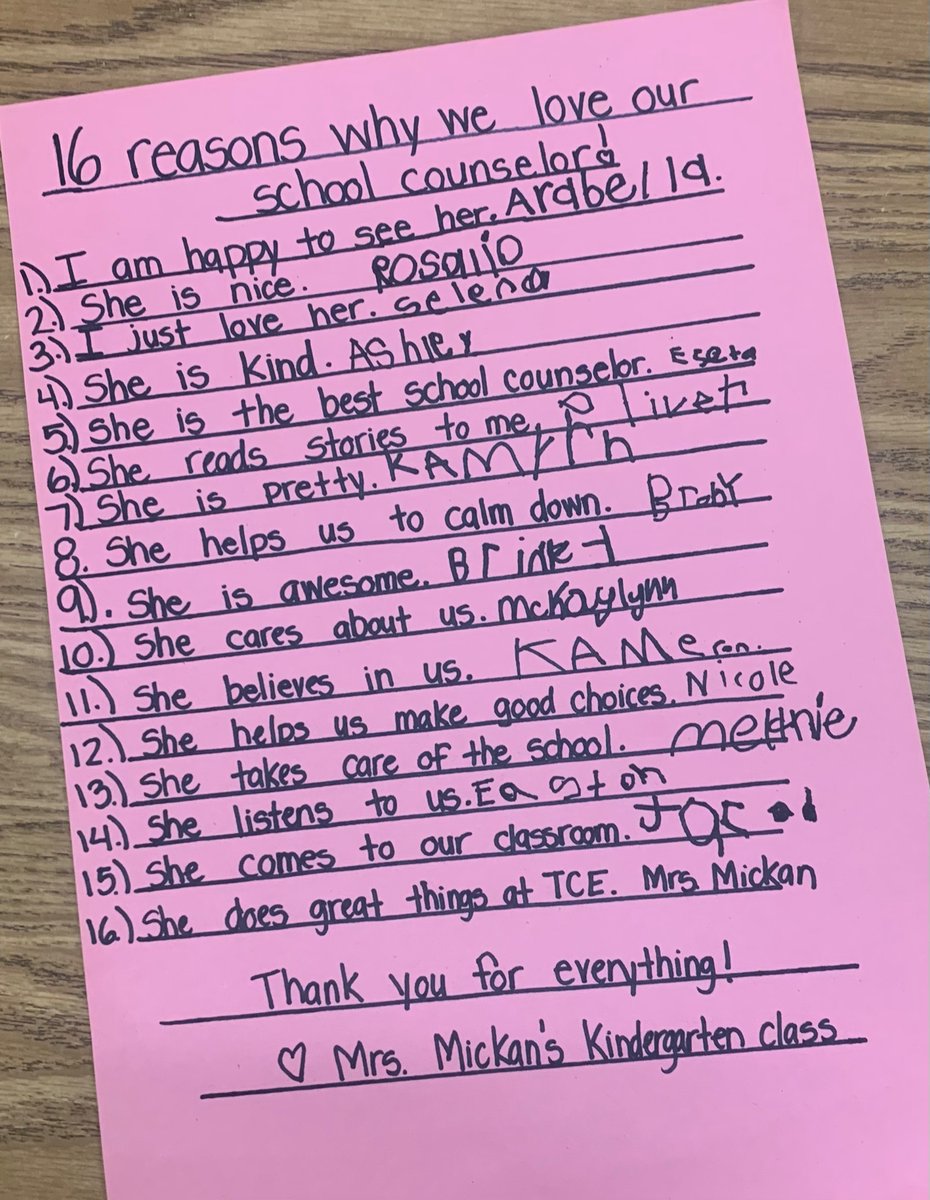 16 reasons why we love our
school counselor!
1.) I am happy to see her. Arabella.
2.) She is nice. Rosalio
3.) I just love her. Selena
4.) She is kind. Ashley
5.) She is the best school counselor. Eseta
6.) She reads stories to me.
7.) She is pretty. KAMryn
8. She helps us to calm down. Brady
9.). She is awesome.
10.) She cares about us. McKaylynn
11.) She believes in us. KAMeron.
12.) She helps us make good choices. Nicole
13.) She takes care of the school.
14.) She listens to us. Easton
15.) She comes to our classroom.
16.) She does great things at TCE. Mrs. Mickan
Thank you for everything!
♡ Mrs. Mickan's Kindergarten class